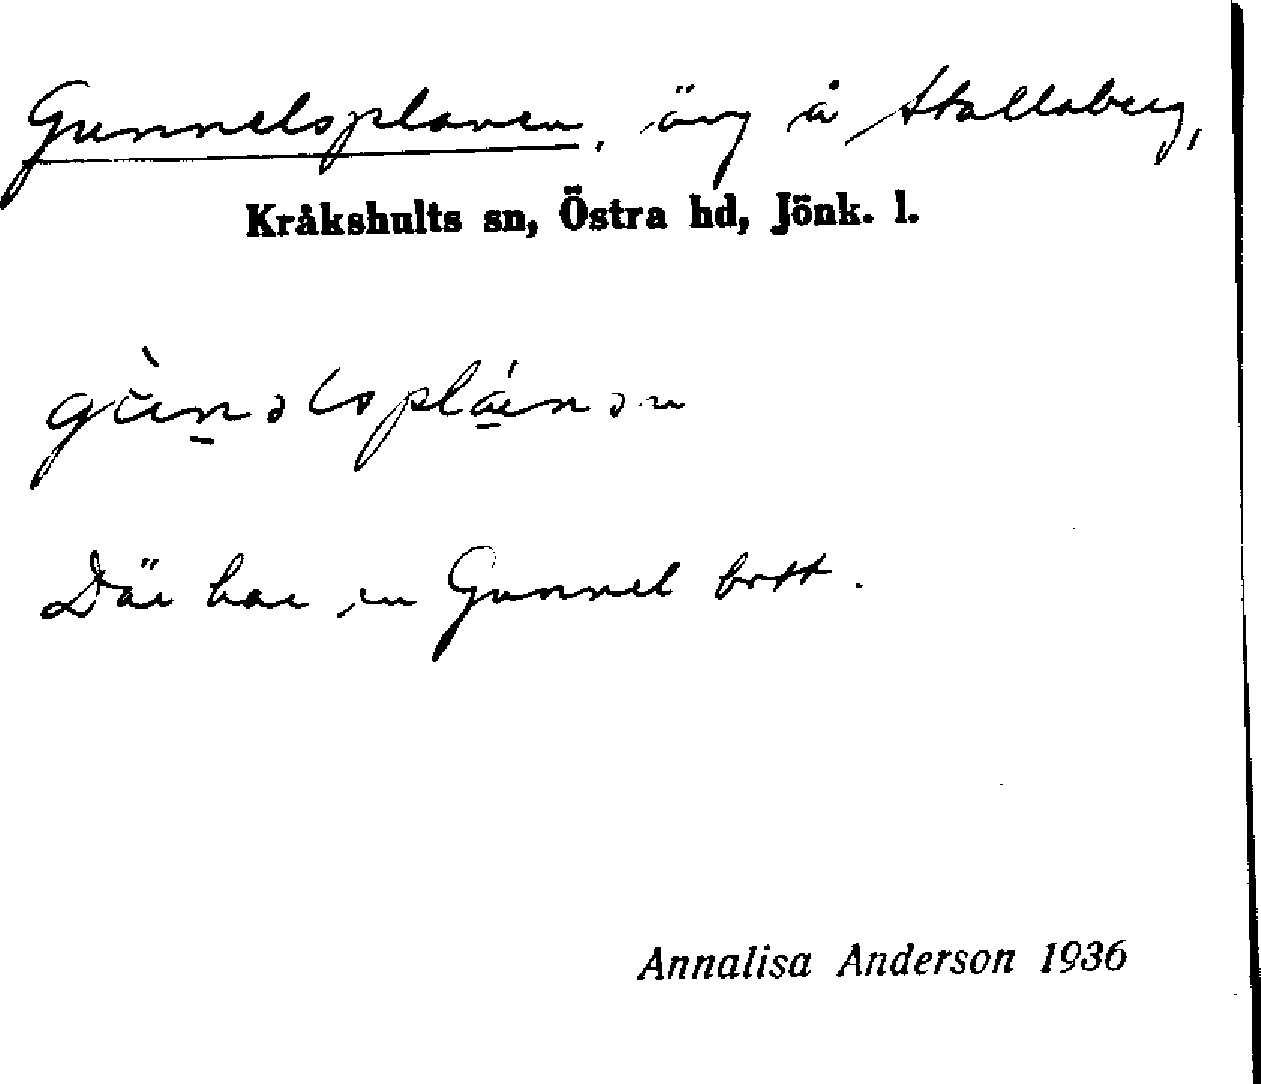 Gunnelsplanen, äng å Stallaberg,
Kråkshults sn, Östra hd, Jönk. l.
Där har en Gunnel bott.
Annalisa Anderson 1936